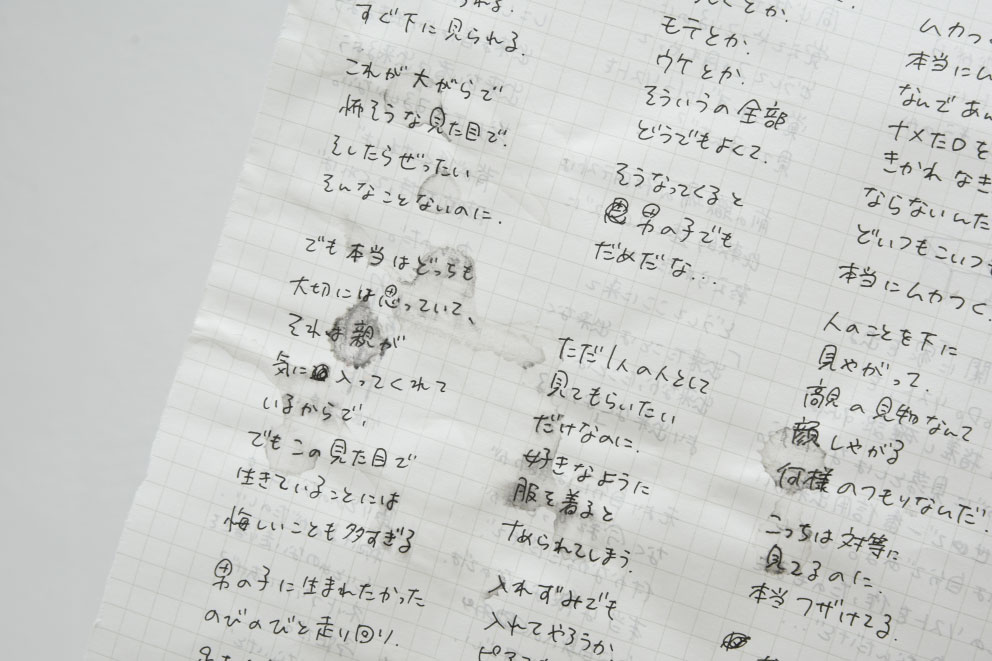 すぐ下に見られる.
これが大がらで
怖そうな見た目で.
そしたらぜったい
そんなことないのに.
でも本当はどっちも
大切には思っていて、
それは親が
気に入ってくれて
いるからで,
でもこの見た目で
生きていることには
悔しいことも多すぎる
男の子に生まれたかった
のびのびと走り回り.
モテとか.
ウケとか.
そういうの全部
どうでもよくて.
そうなってくると
男の子でも
だめだな...
ただ1人の人として
見てもらいたい
だけなのに.
好きなように
服を着ると
ナめられてしまう.
入れずみでも
入れてやろうか
ムカつ
本当にム
なんであん
ナメた口を
きかれなき
ならないんた
どいつもこいつも
本当にムカつく.
人のことを下に
見やがって.
の見物なんて
顔しやがる
何様のつもりなんだ!
こっちは対等に
見てるのに.
本当フザけてる.